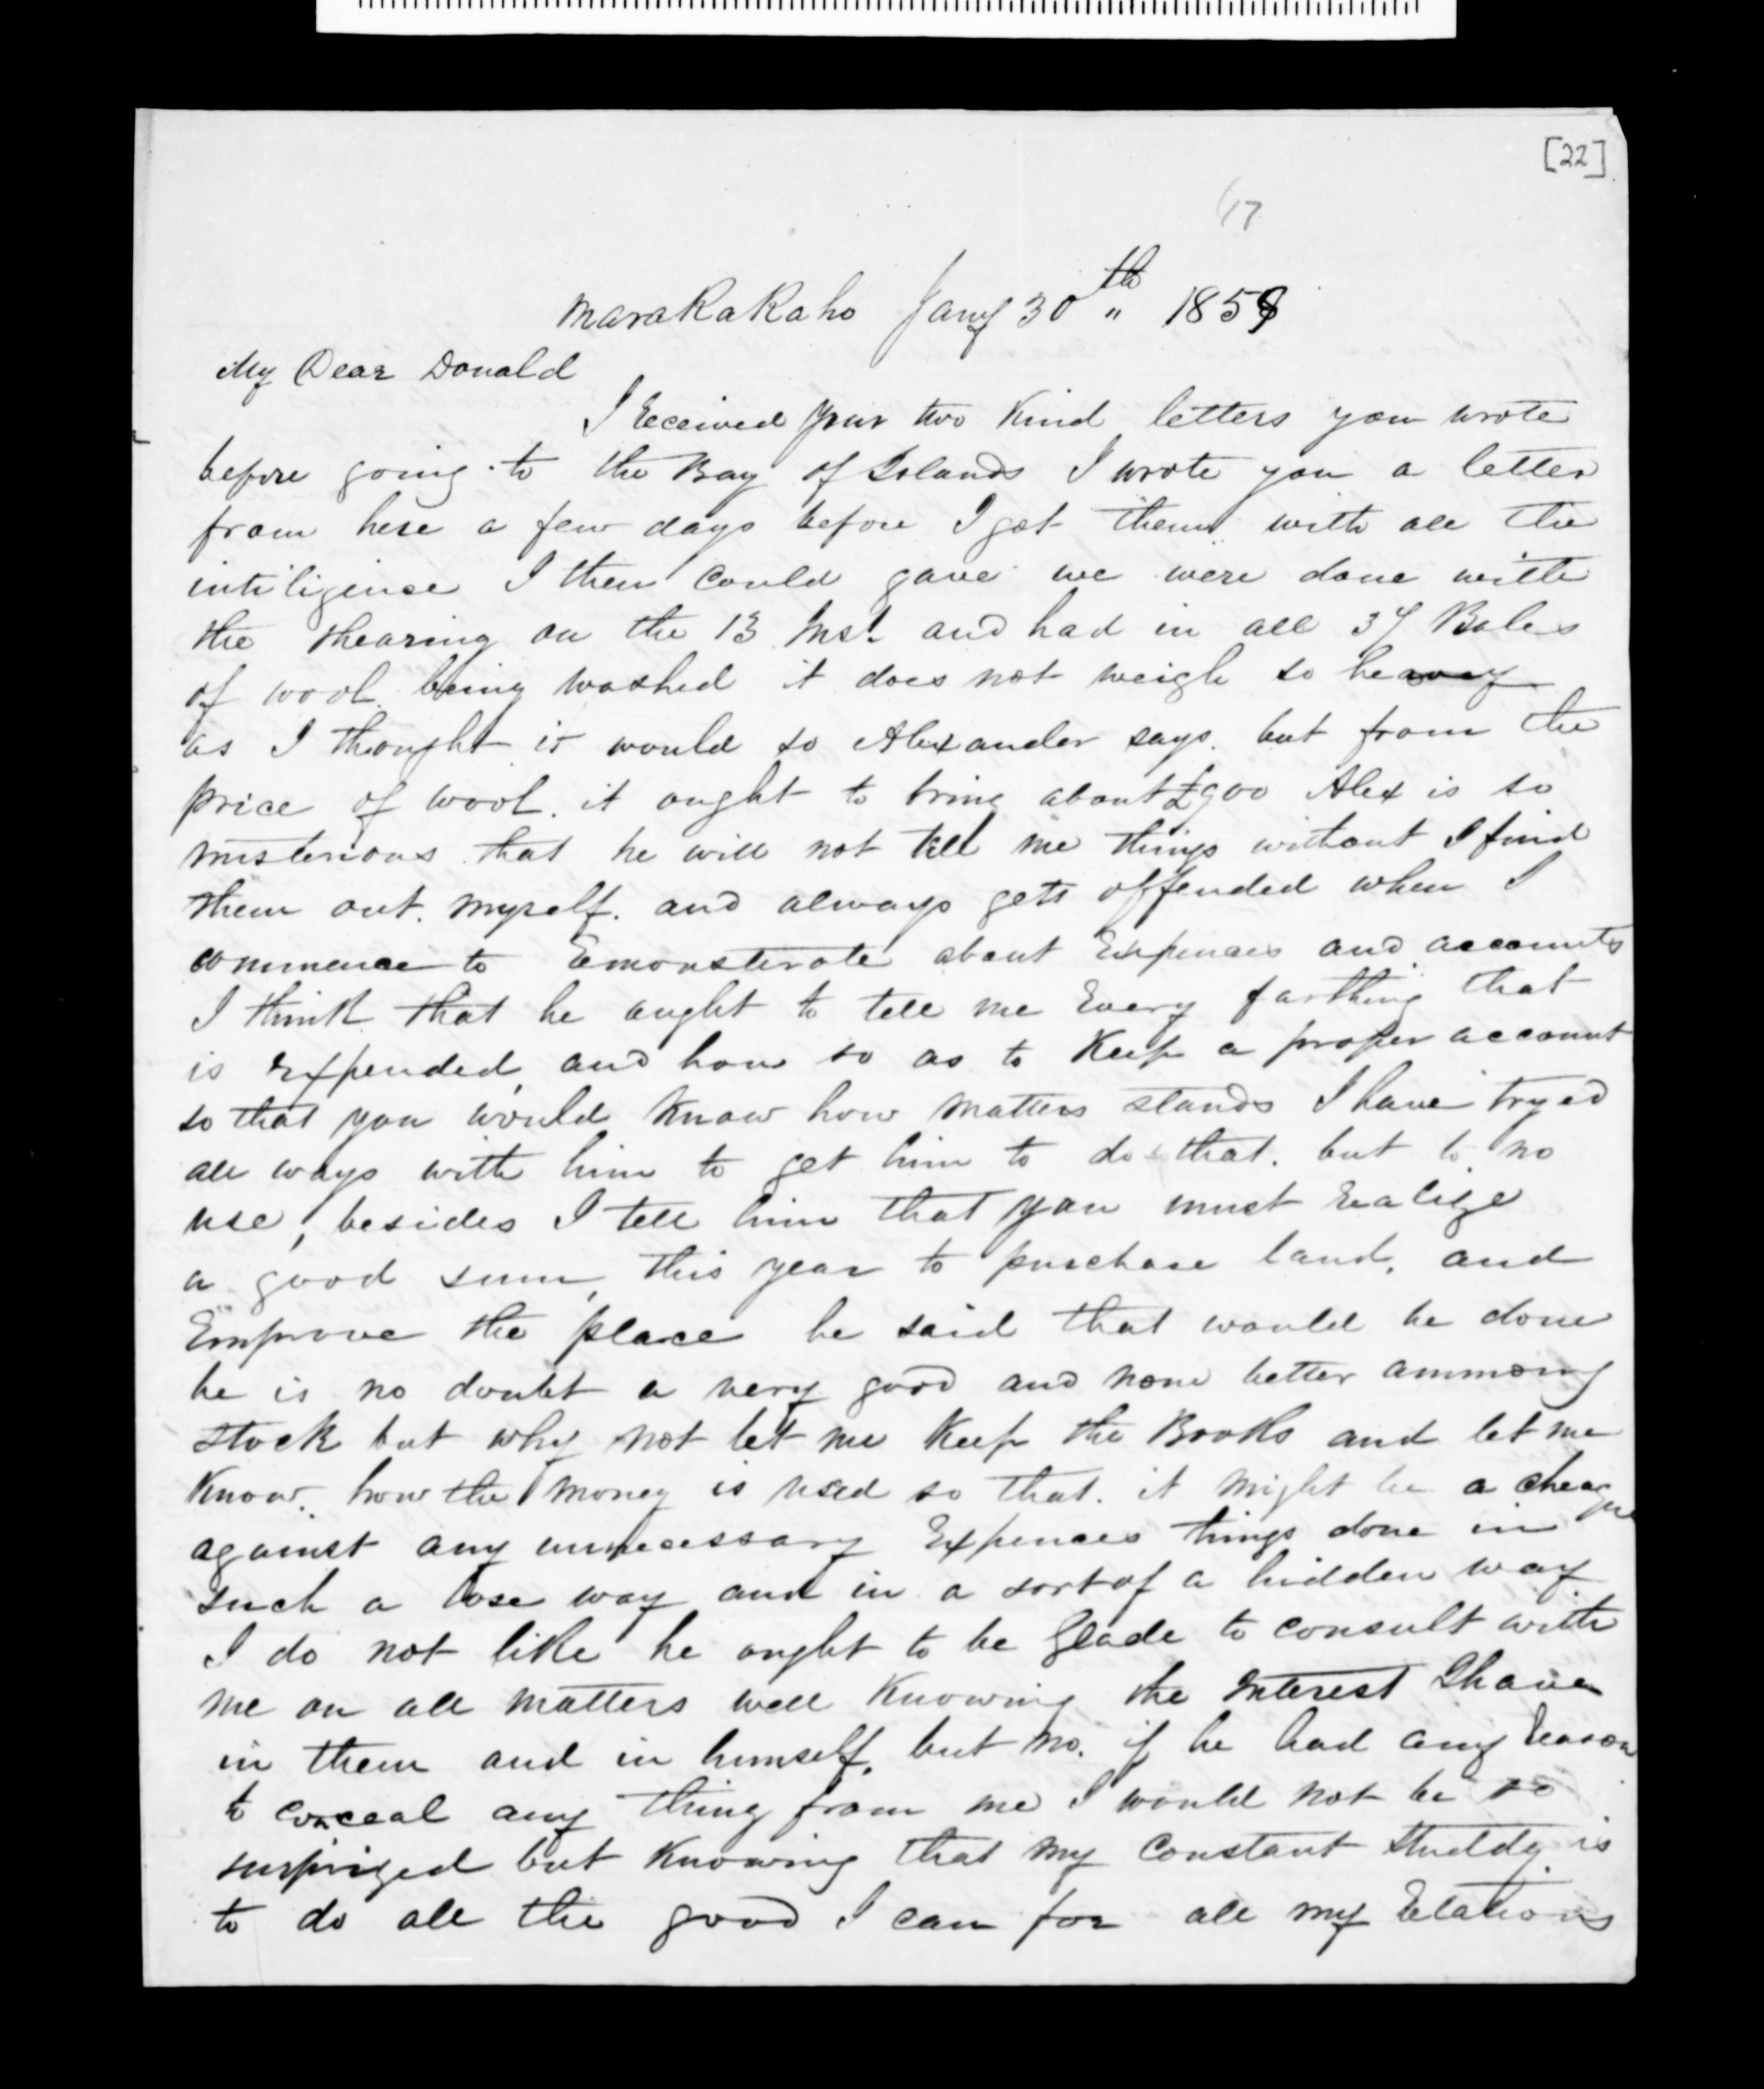 [22]
67
Marakakaho Jany 30th " 1859
My Dear Donald
I received your two kind letters you wrote
before going to the Bay of Islands I wrote you a letter
from here a few days before I got them with all the
intiligense I then could gave we were done with
the shearing on the 13 Inst and had in all 37 Bales
of wool. being washed it does not weigh so heavey
as I thought it would so Alexander says. but from the
price of wool. it ought to bring about £900 Alex is so
misterious that he will not tell me things without I find
them out. myself. and always gets offended when I
commence to remonsterate about Expences and accounts
I think that he aught to tell me Every farthing that
is Expended, and how so as to Keep a proper account
so that you would know how matters stands I have tryed
all ways with him to get him to do that. but to no
use, besides I tell him that you must realize
a good sum, this year to purchase land, and
Emprove the place he said that would be done
he is no doubt a very good and none better ammong
stock but why not let me Keep the Books and let me
Know. how the money is used so that. it might be a cheaque
against any unnecessary Expences things done in
such a lose way and in a sort of a hidden way
I do not like he ought to be glade to consult with
me on all matters well Knowing the Interest I have
in them and in himself. but no. if he had any reason
to conceal any thing from me I would not be so
surprized but Knowing that my Constant studdy is
to do all the good I can for all my relations